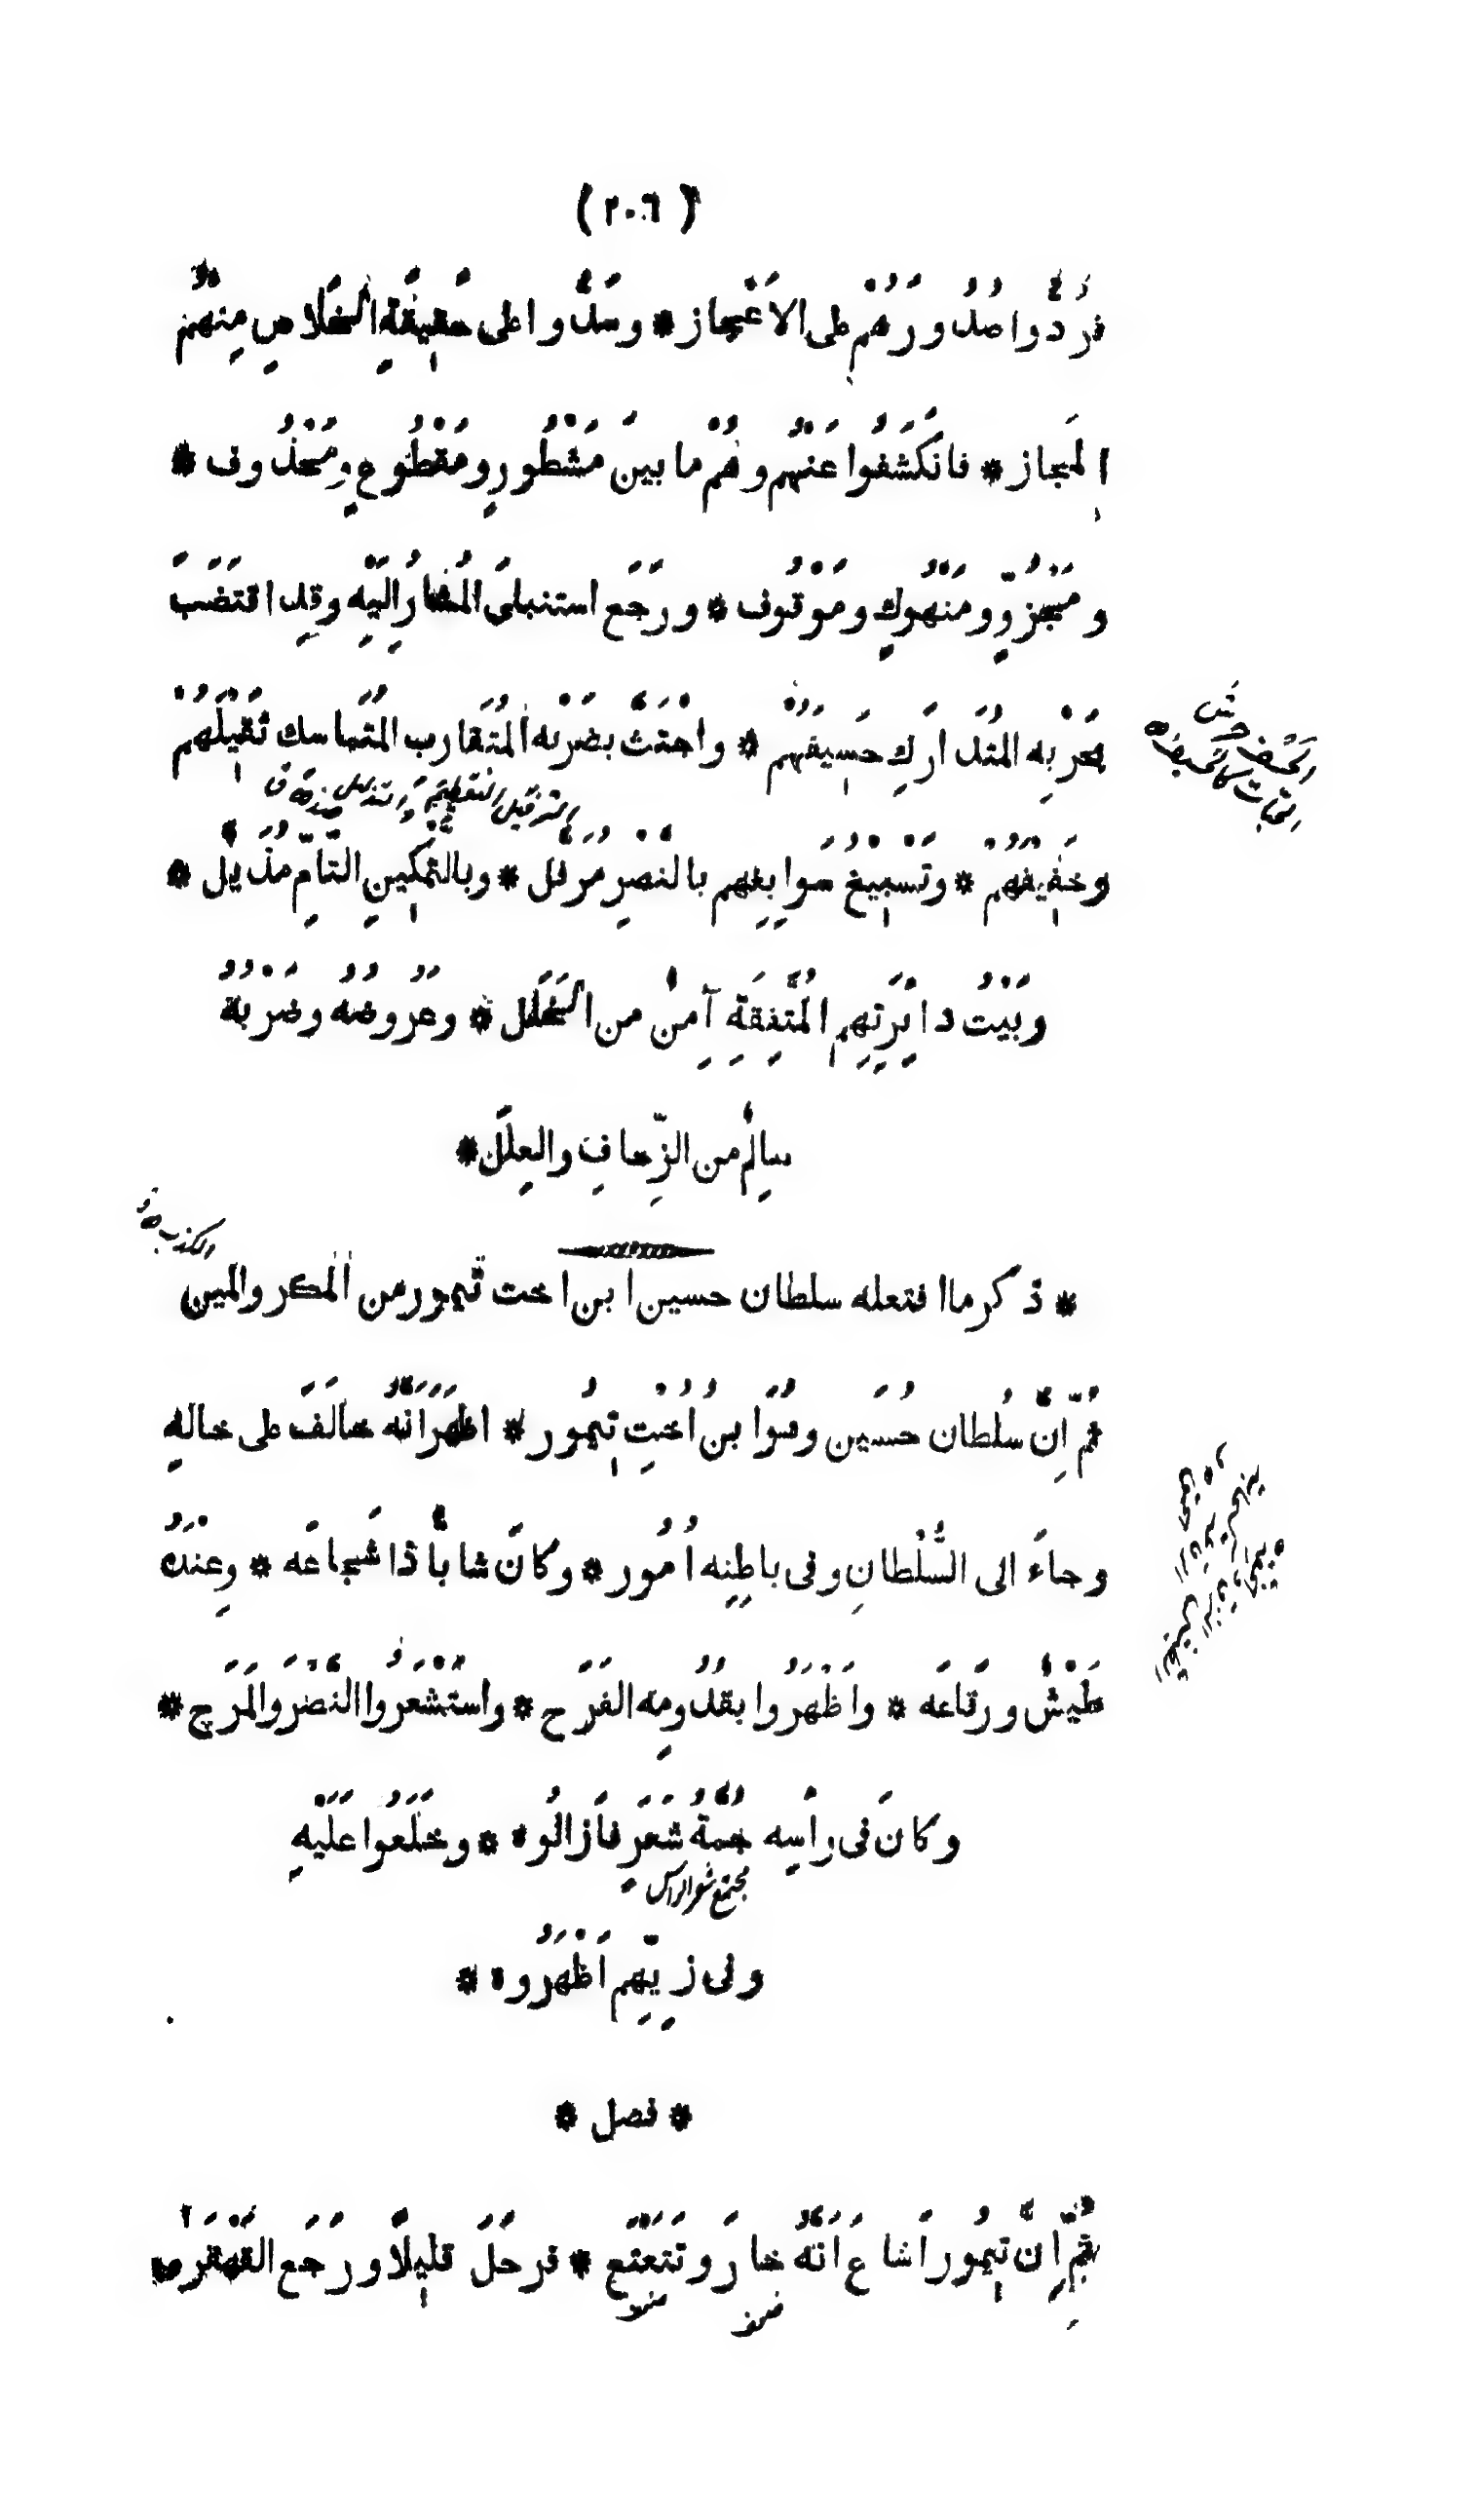 (٢٠٦)
فرَدُّوا صُدُورَهُمْ على الاَعْجاز * وسَدُّوا على حَقِيقَةِ الخَلاصِ مِنْهُمُ
المَجاز * فانكَشَفُوا عَنْهُم وهُمْ ما بينَ مَشْطُورٍ ومَقْطُوعٍ ومَحْذُوف *
ومَجْزُوٍّ ومَنْهُوكٍ ومَوْقُوف * ورَجَع استنبلىَ المُشارُ اِلَيْه وقد اقتَضَبَ
بحَرْبِه المتُدَارَكِ حَسِيفَهُمْ * واجْتَثَّ بضَرْبه المُتقارب المُتماسك ثَقِيْلَهُمْ
وخَفِيفَهُمْ * وتَسْبِيغُ سَوابِغِهم بالنَّصْرِ مُرَفَّل * وبالتَّمْكِينِ التّامِّ مُذَيَّل *
وبَيْتُ دائِرَتِهِم المُتَّفِقَةِ آمِنٌ من الخَلَل * وعَرُوضُهُ وضَرْبُهُ
سالِمٌ من الزِّحافِ والعِلَل *
الكذب ه
* ذكر ما افتعله سلطان حسين ابن اخت تيمور من المكر والمين
ثُمّ اِنَّ سُلطان حُسَين وهُوَ ابن اُخْتِ تيمُور * اظهَرَ اَنَّهُ خالَفَ على خالِهِ
وجاءَ الى السُّلْطانِ وفى باطِنِه اُمُور * وكانَ شابًّا ذا شَجاعَه * وعِنْدَهُ
طَيْشٌ ورَقاعَه * واَظْهَرُوا بقُدُومِه الفَرَح * واستَشْعَرُوا النَّصْرَ والمَرَح *
وكانَ فى راْسِه جُمَّةُ شَعَرٍ فاَزالُوه * وخَلَعُوا عَلَيْهِ
مجتمع شعر الراس
وفى زِيِّهِم اَظْهَرُوه *
* فصل *
ثُمّ اِنَّ تيمُور اَشاعَ اَنَّهُ خارَ وتَتَعْتَع * فرحَلَ قليلًا ورَجَع القَهْقَرى